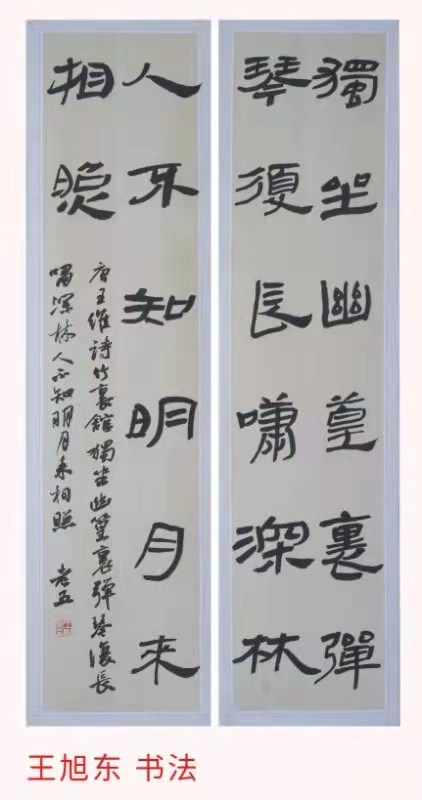 獨坐幽篁裏彈
琴復長嘯深林
人不知明月來
相照
唐王維詩竹裏館獨坐幽篁裏彈琴復長
嘯深林人不知明月來相照 老五
王旭东 书法